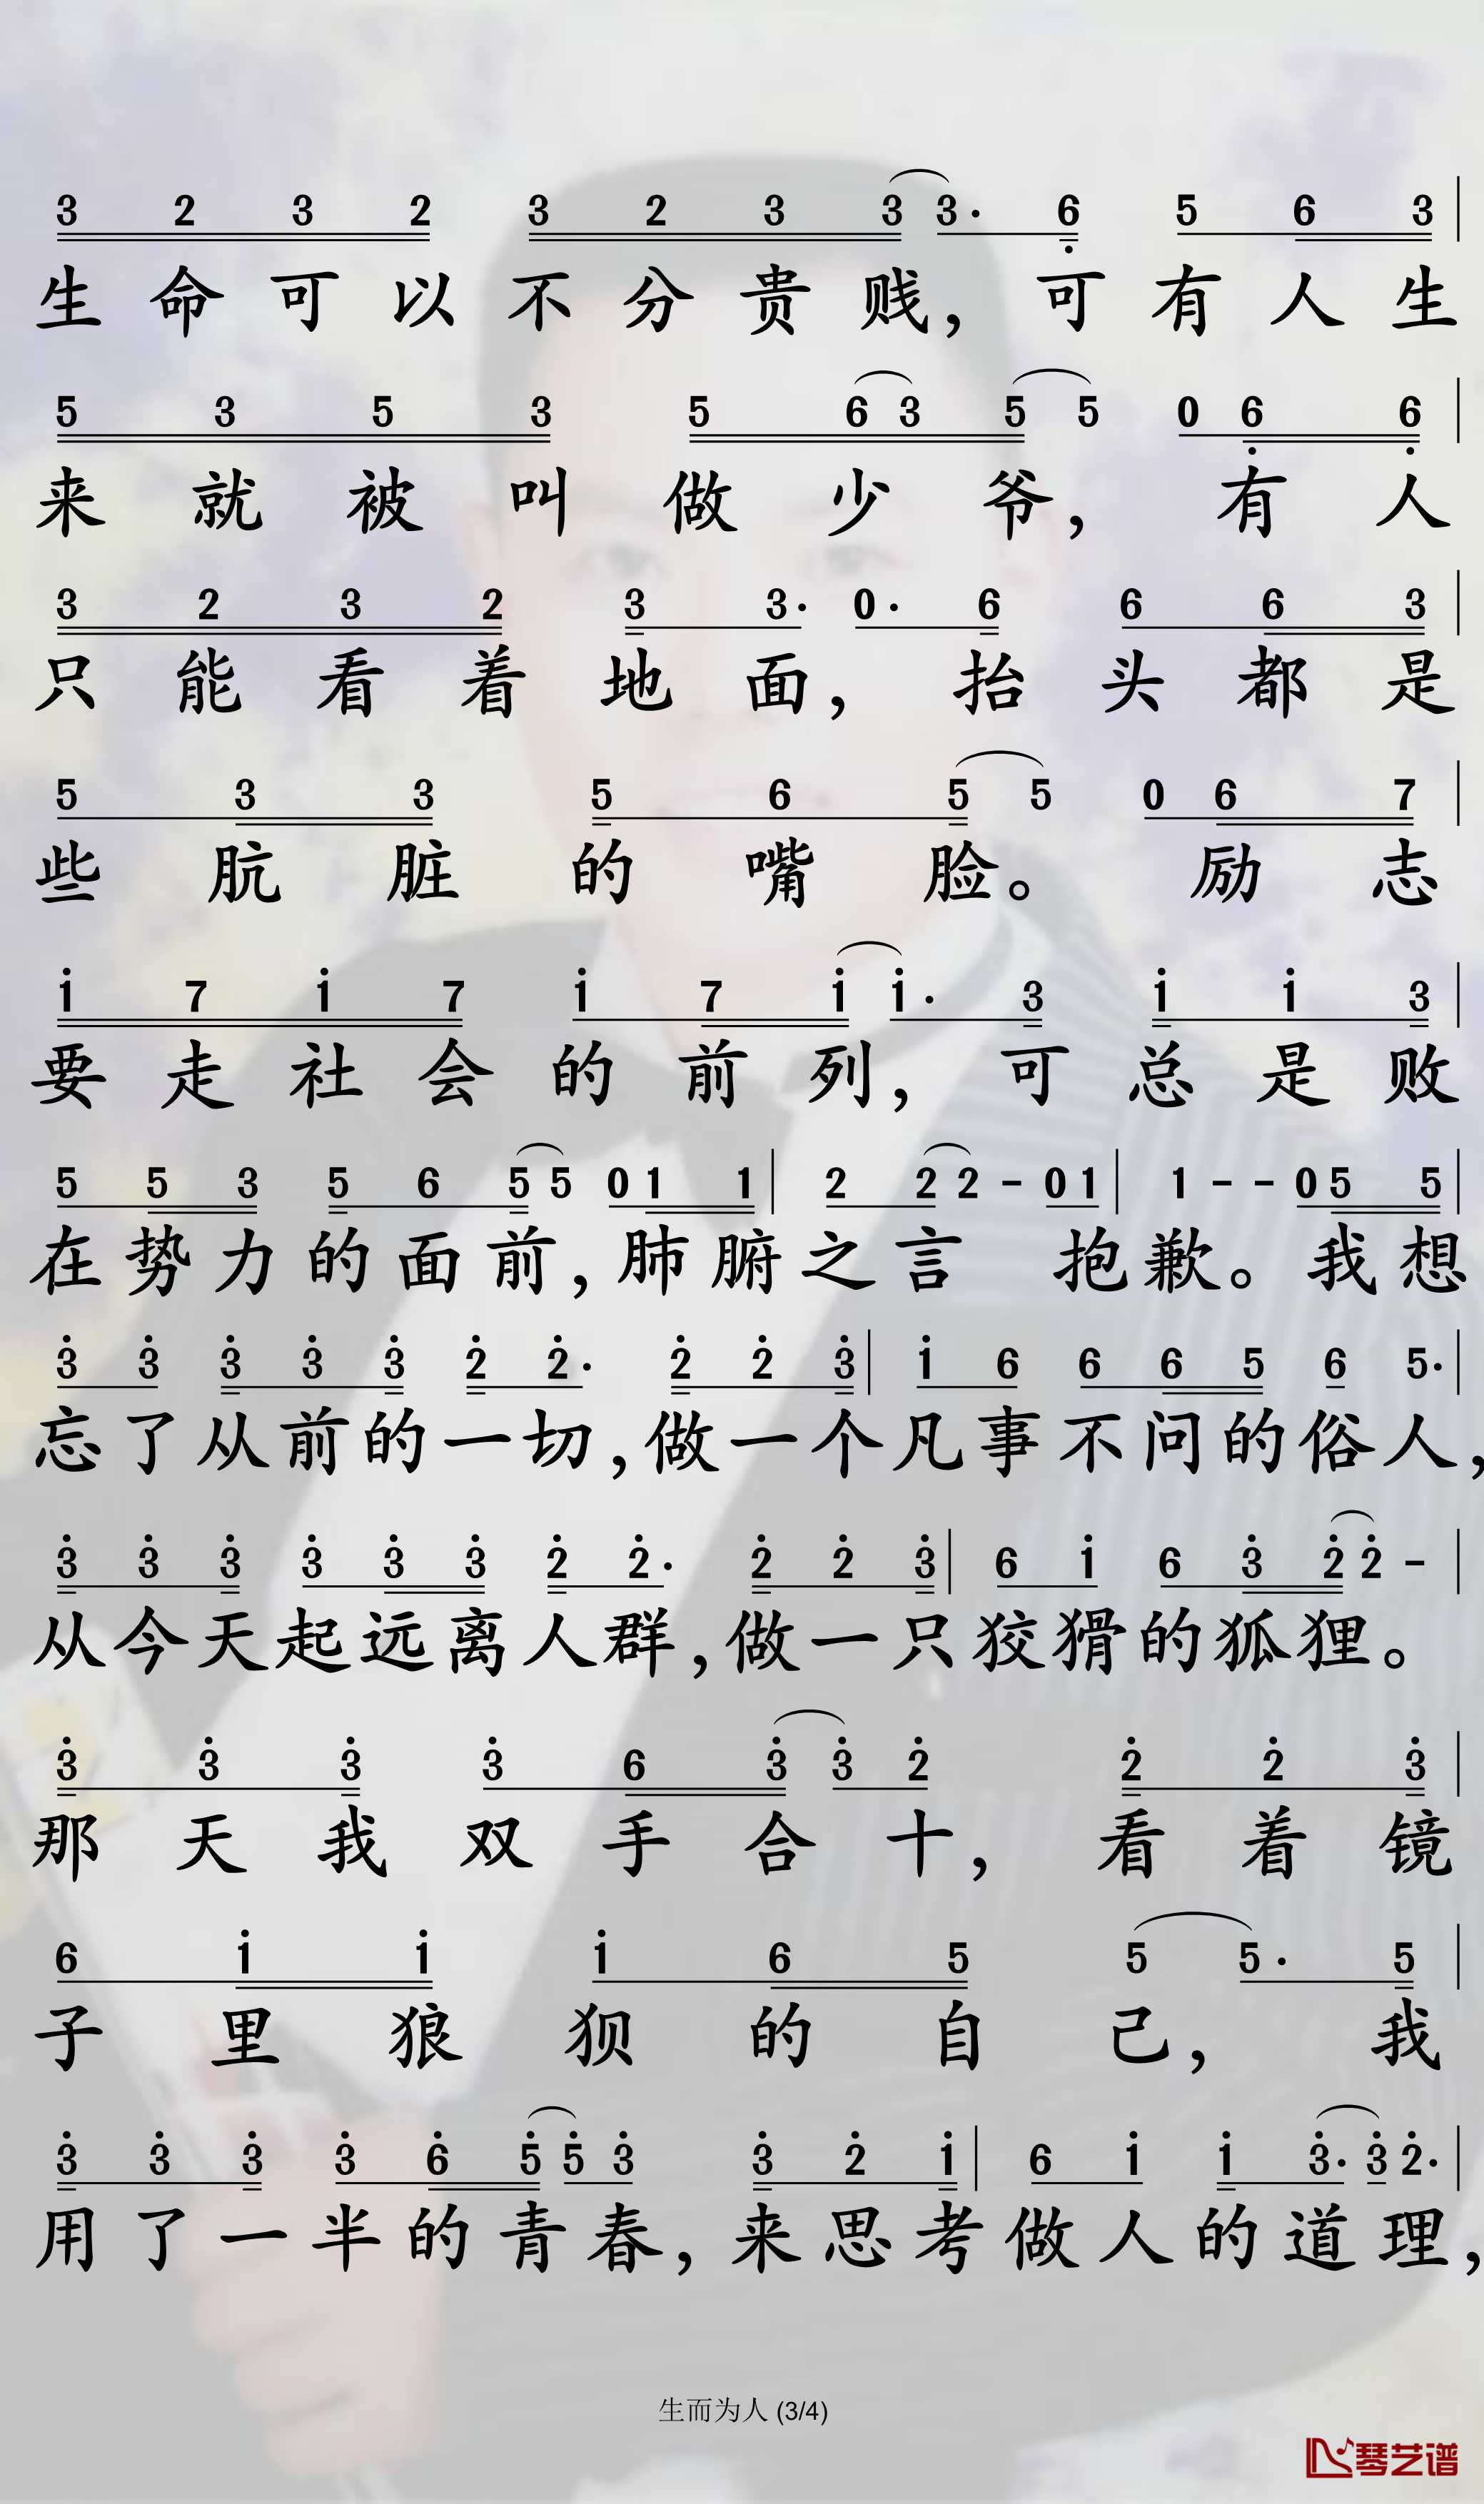 3 2 3 2 3 2 3 3 3· 6̣ 5 6 3 |
生命可以不分贵贱，可有人生
5 3 5 3 5 6 3 5 5 0 6̣ 6̣ |
来就被叫做少爷，有人
3 2 3 2 3 3· 0· 6 6 6 3 |
只能看着地面，抬头都是
5 3 3 5 6 5 5 0 6 7 |
些肮脏的嘴脸。励志
1̇ 7 1̇ 7 1̇ 7 1̇ 1̇· 3 1̇ 1̇ 3 |
要走社会的前列，可总是败
5 5 3 5 6 5 5 0 1 1 | 2 2 2 - 0 1 | 1 - - 0 5 5 |
在势力的面前，肺腑之言 抱歉。我想
3̇ 3̇ 3̇ 3̇ 3̇ 2̇ 2̇· 2̇ 2̇ 3̇ | 1̇ 6 6 6 5 6 5· |
忘了从前的一切，做一个凡事不问的俗人，
3̇ 3̇ 3̇ 3̇ 3̇ 3̇ 2̇ 2̇· 2̇ 2̇ 3̇ | 6 1̇ 6 3̇ 2̇ 2̇ - |
从今天起远离人群，做一只狡猾的狐狸。
3̇ 3̇ 3̇ 3̇ 6 3̇ 3̇ 2̇ 2̇ 2̇ 3̇ |
那天我双手合十，看着镜
6 1̇ 1̇ 1̇ 6 5 5 5· 5 |
子里狼狈的自己，我
3̇ 3̇ 3̇ 3̇ 6̇ 5̇ 5̇ 3̇ 3̇ 2̇ 1̇ | 6 1̇ 1̇ 3̇· 3̇ 2̇· |
用了一半的青春，来思考做人的道理，
生而为人 (3/4)
琴艺谱